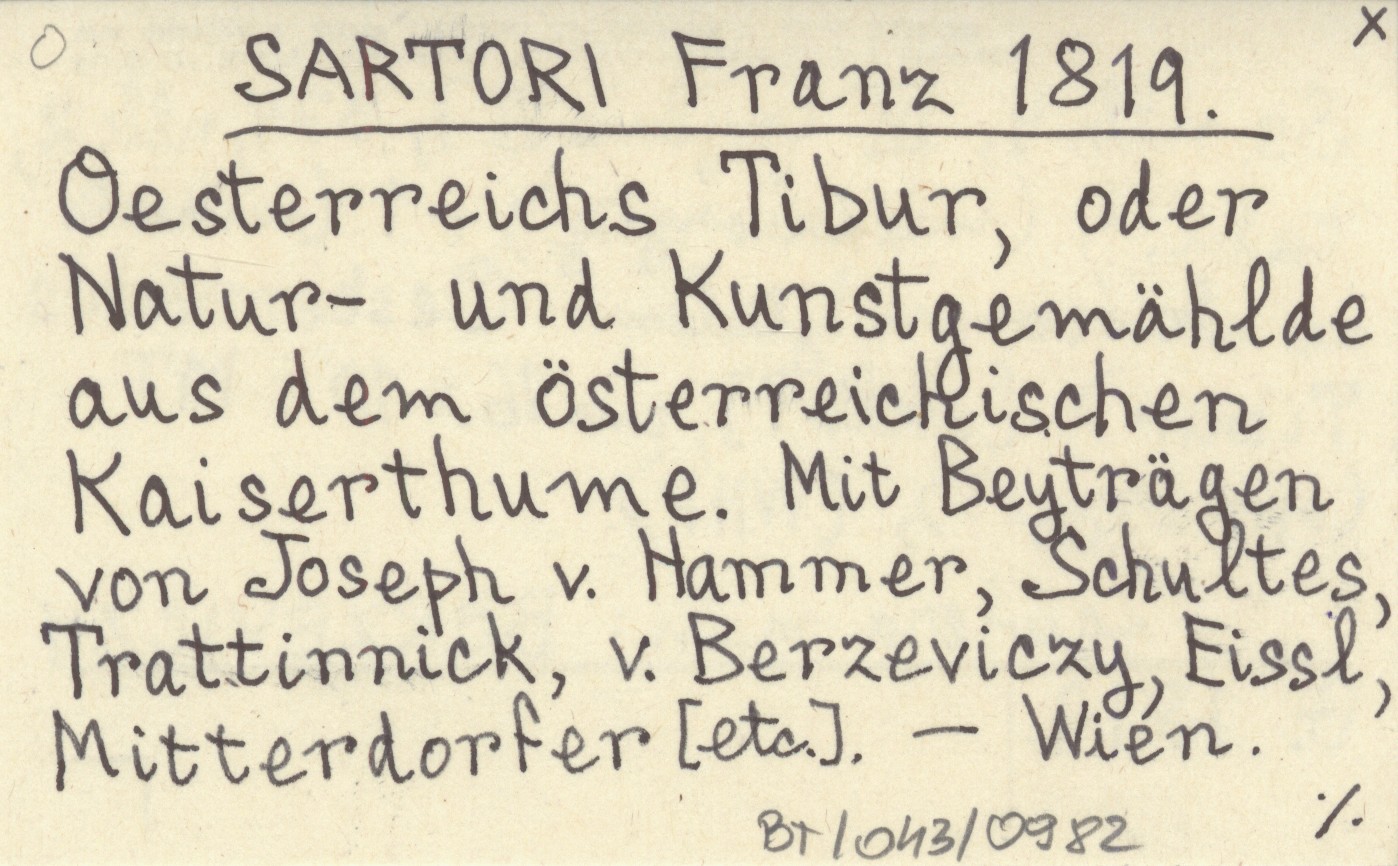 O x
SARTORI Franz 1819.
Oesterreichs Tibur, oder
Natur- und Kunstgemählde
aus dem österreichischen
Kaiserthume. Mit Beyträgen
von Joseph v. Hammer, Schultes,
Trattinnick, v. Berzeviczy, Eissl,
Mitterdorfer [etc.]. — Wien.
./.
BT/043/0982